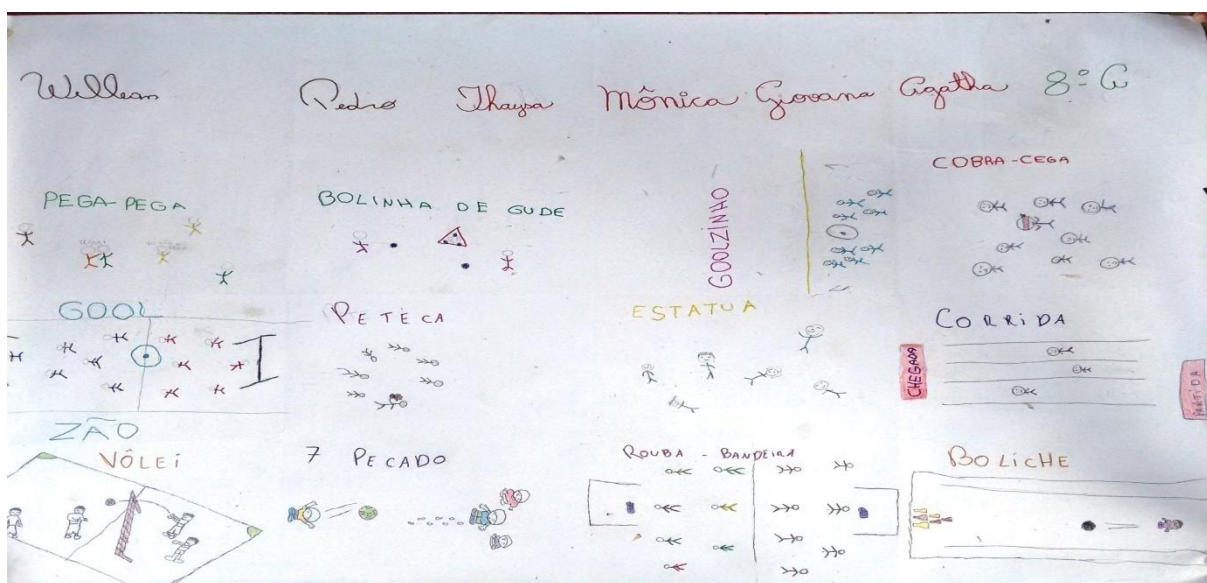 Willian Pedro Thaysa Mônica Giovana Agatha 8º A
PEGA-PEGA
BOLINHA DE GUDE
GOOLZINHO
COBRA-CEGA
GOOL
ZÃO
PETECA
ESTATUA
CORRIDA
CHEGADA
PARTIDA
VÔLEI
7 PECADO
ROUBA-BANDEIRA
BOLICHE